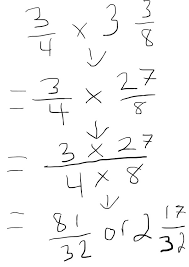 3/4 × 3 3/8
↓
= 3/4 × 27/8
↓
= 3 × 27 / 4 × 8
↓
= 81/32 or 2 17/32